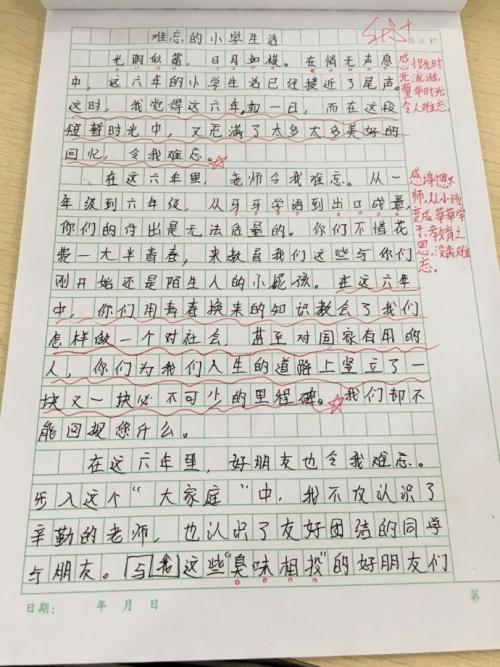 难忘的小学生活
光阴似箭，日月如梭。在悄无声息
中，这六年的小学生活已经接近了尾声。
这时，我觉得这六年，如一日，而在这段
短暂时光中，又充满了太多太多美好的
回忆，令我难忘。
感恨光时
光流逝，
童年时光
令人难忘。
在这六年里，老师令我难忘。从一
年级到六年级，从牙牙学语到出口成章，
你们的付出是无法估量的。你们不惜花
费一大半青春，来教育我们这些与你们
刚开始还是陌生人的小屁孩。在这六年
中，你们用青春换来的知识教会了我们
怎样做一个对社会，甚至对国家有用的
人，你们为我们人生的道路上竖立了一
块又一块必不可少的里程碑。我们却不
能回报您什么。
师，从小孩
变成莘莘学
子，教育之
恩，没齿难
忘。
在这六年里，好朋友也令我难忘。
步入这个“大家庭”中，我不仅认识了
辛勤的老师，也认识了友好团结的同学
与朋友。与我这些“臭味相投”的好朋友们
日期： 年 月 日
第